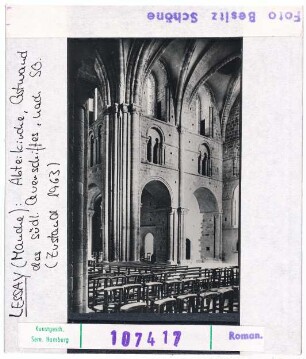 Foto Besitz Schöne
LESSAY (Manche): Abteikirche, Ostwand
des südl. Querschiffes, nach SO.
(Zustand 1963)
Kunstgesch.
Sem. Hamburg
107417
Roman.